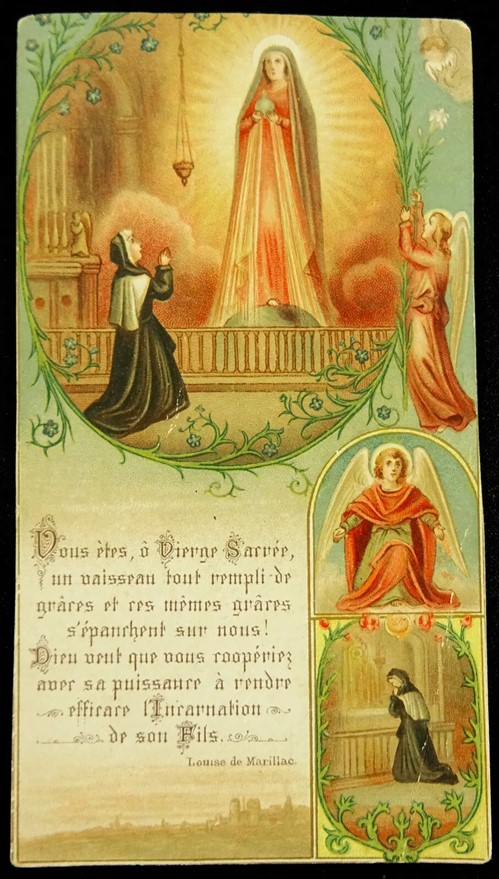 Vous êtes, ô Vierge Sacrée,
un vaisseau tout rempli de
grâces et ces mêmes grâces
s'épanchent sur nous!
Dieu veut que vous coopériez
avec sa puissance à rendre
efficace l'Incarnation
de son Fils.
Louise de Marillac.